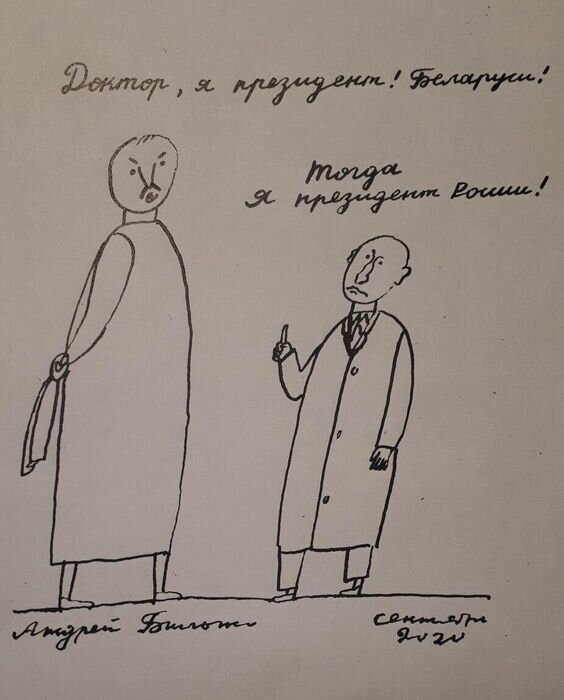 Доктор, я президент! Беларуси!
Тогда
я президент России!
Андрей Бильжо
сентябрь
2020